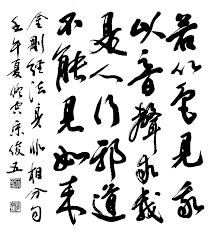 若以色見我
以音聲求我
是人行邪道
不能見如來
金剛經法身非相分句
壬午夏俊五